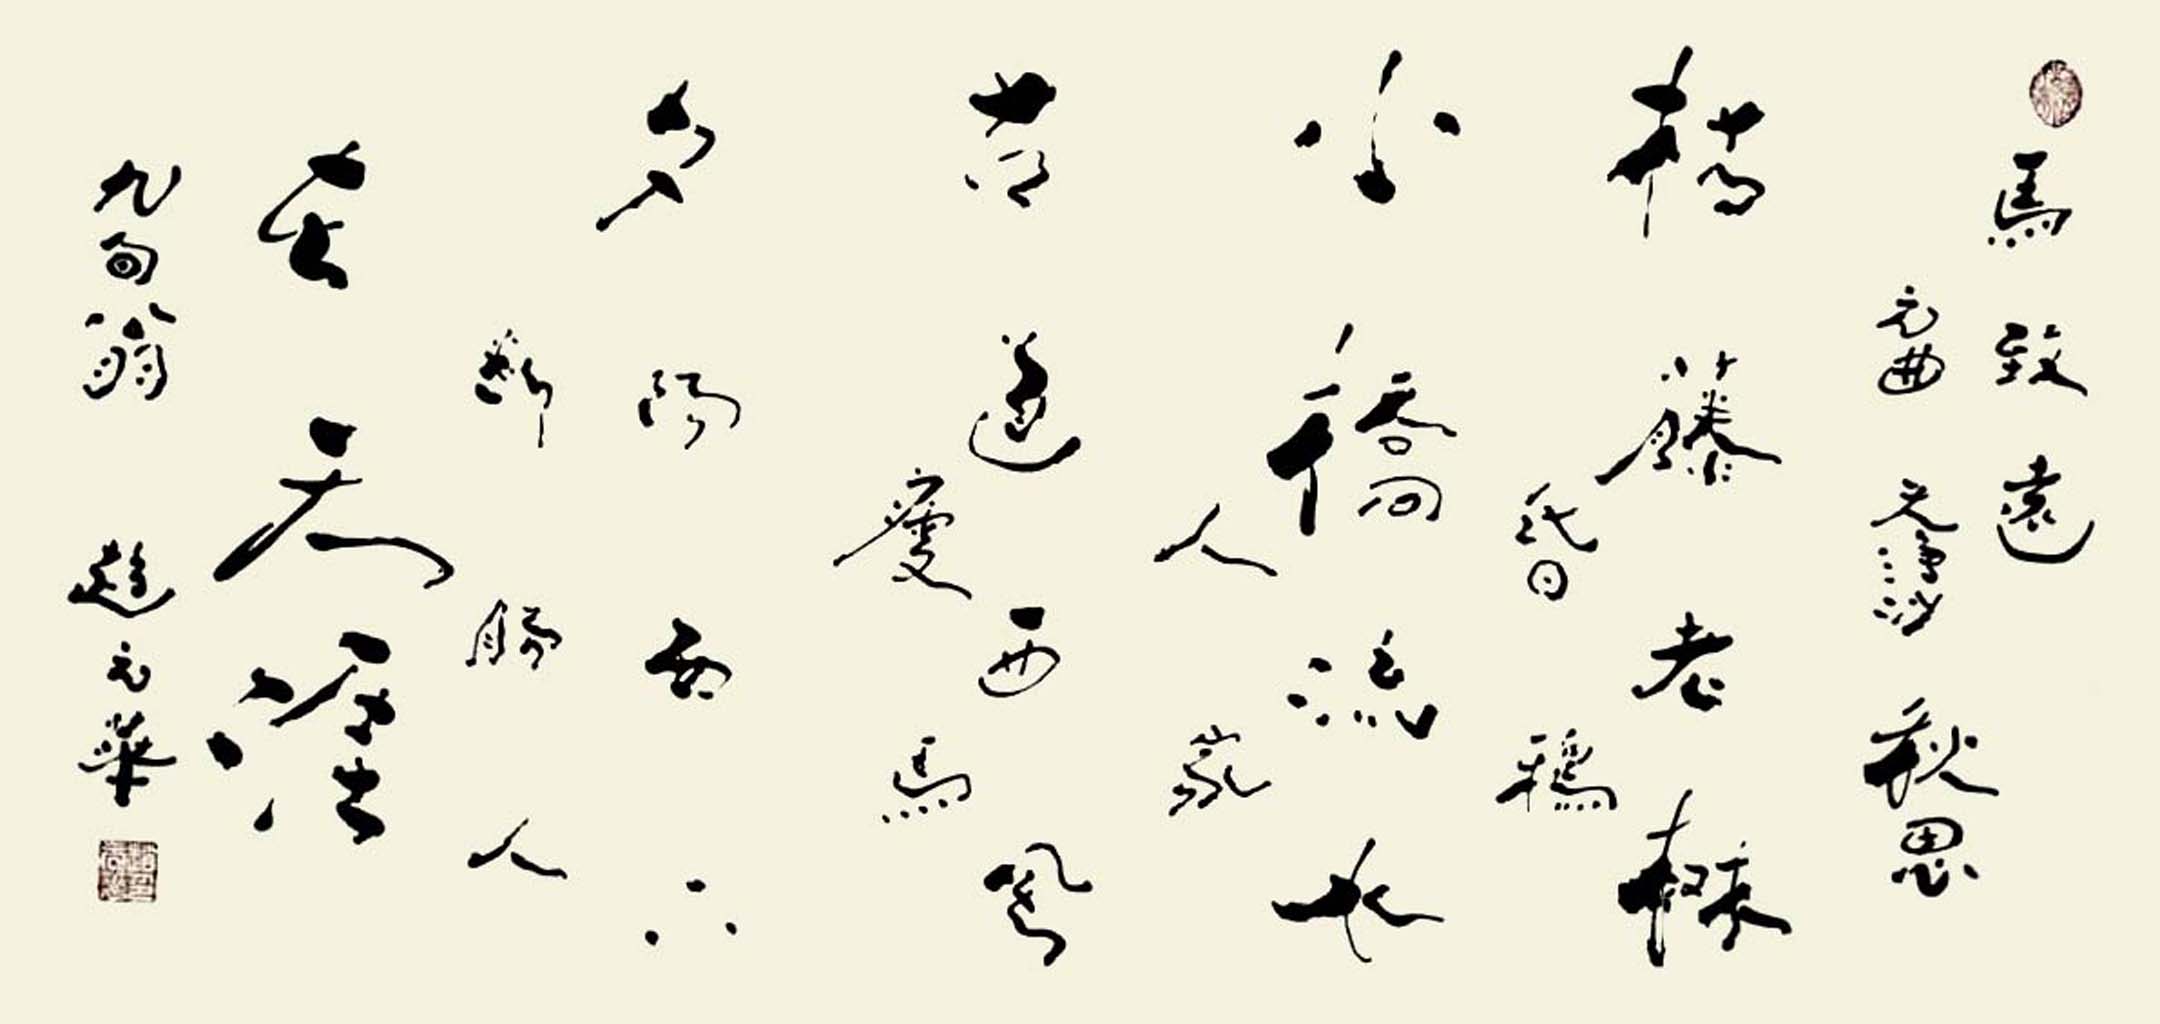 馬致遠
元曲 天淨沙 秋思
枯藤老樹
昏鴉
小橋流水
人家
古道西風
瘦馬
夕陽西下
斷腸人
在天涯
九旬翁 趙元華